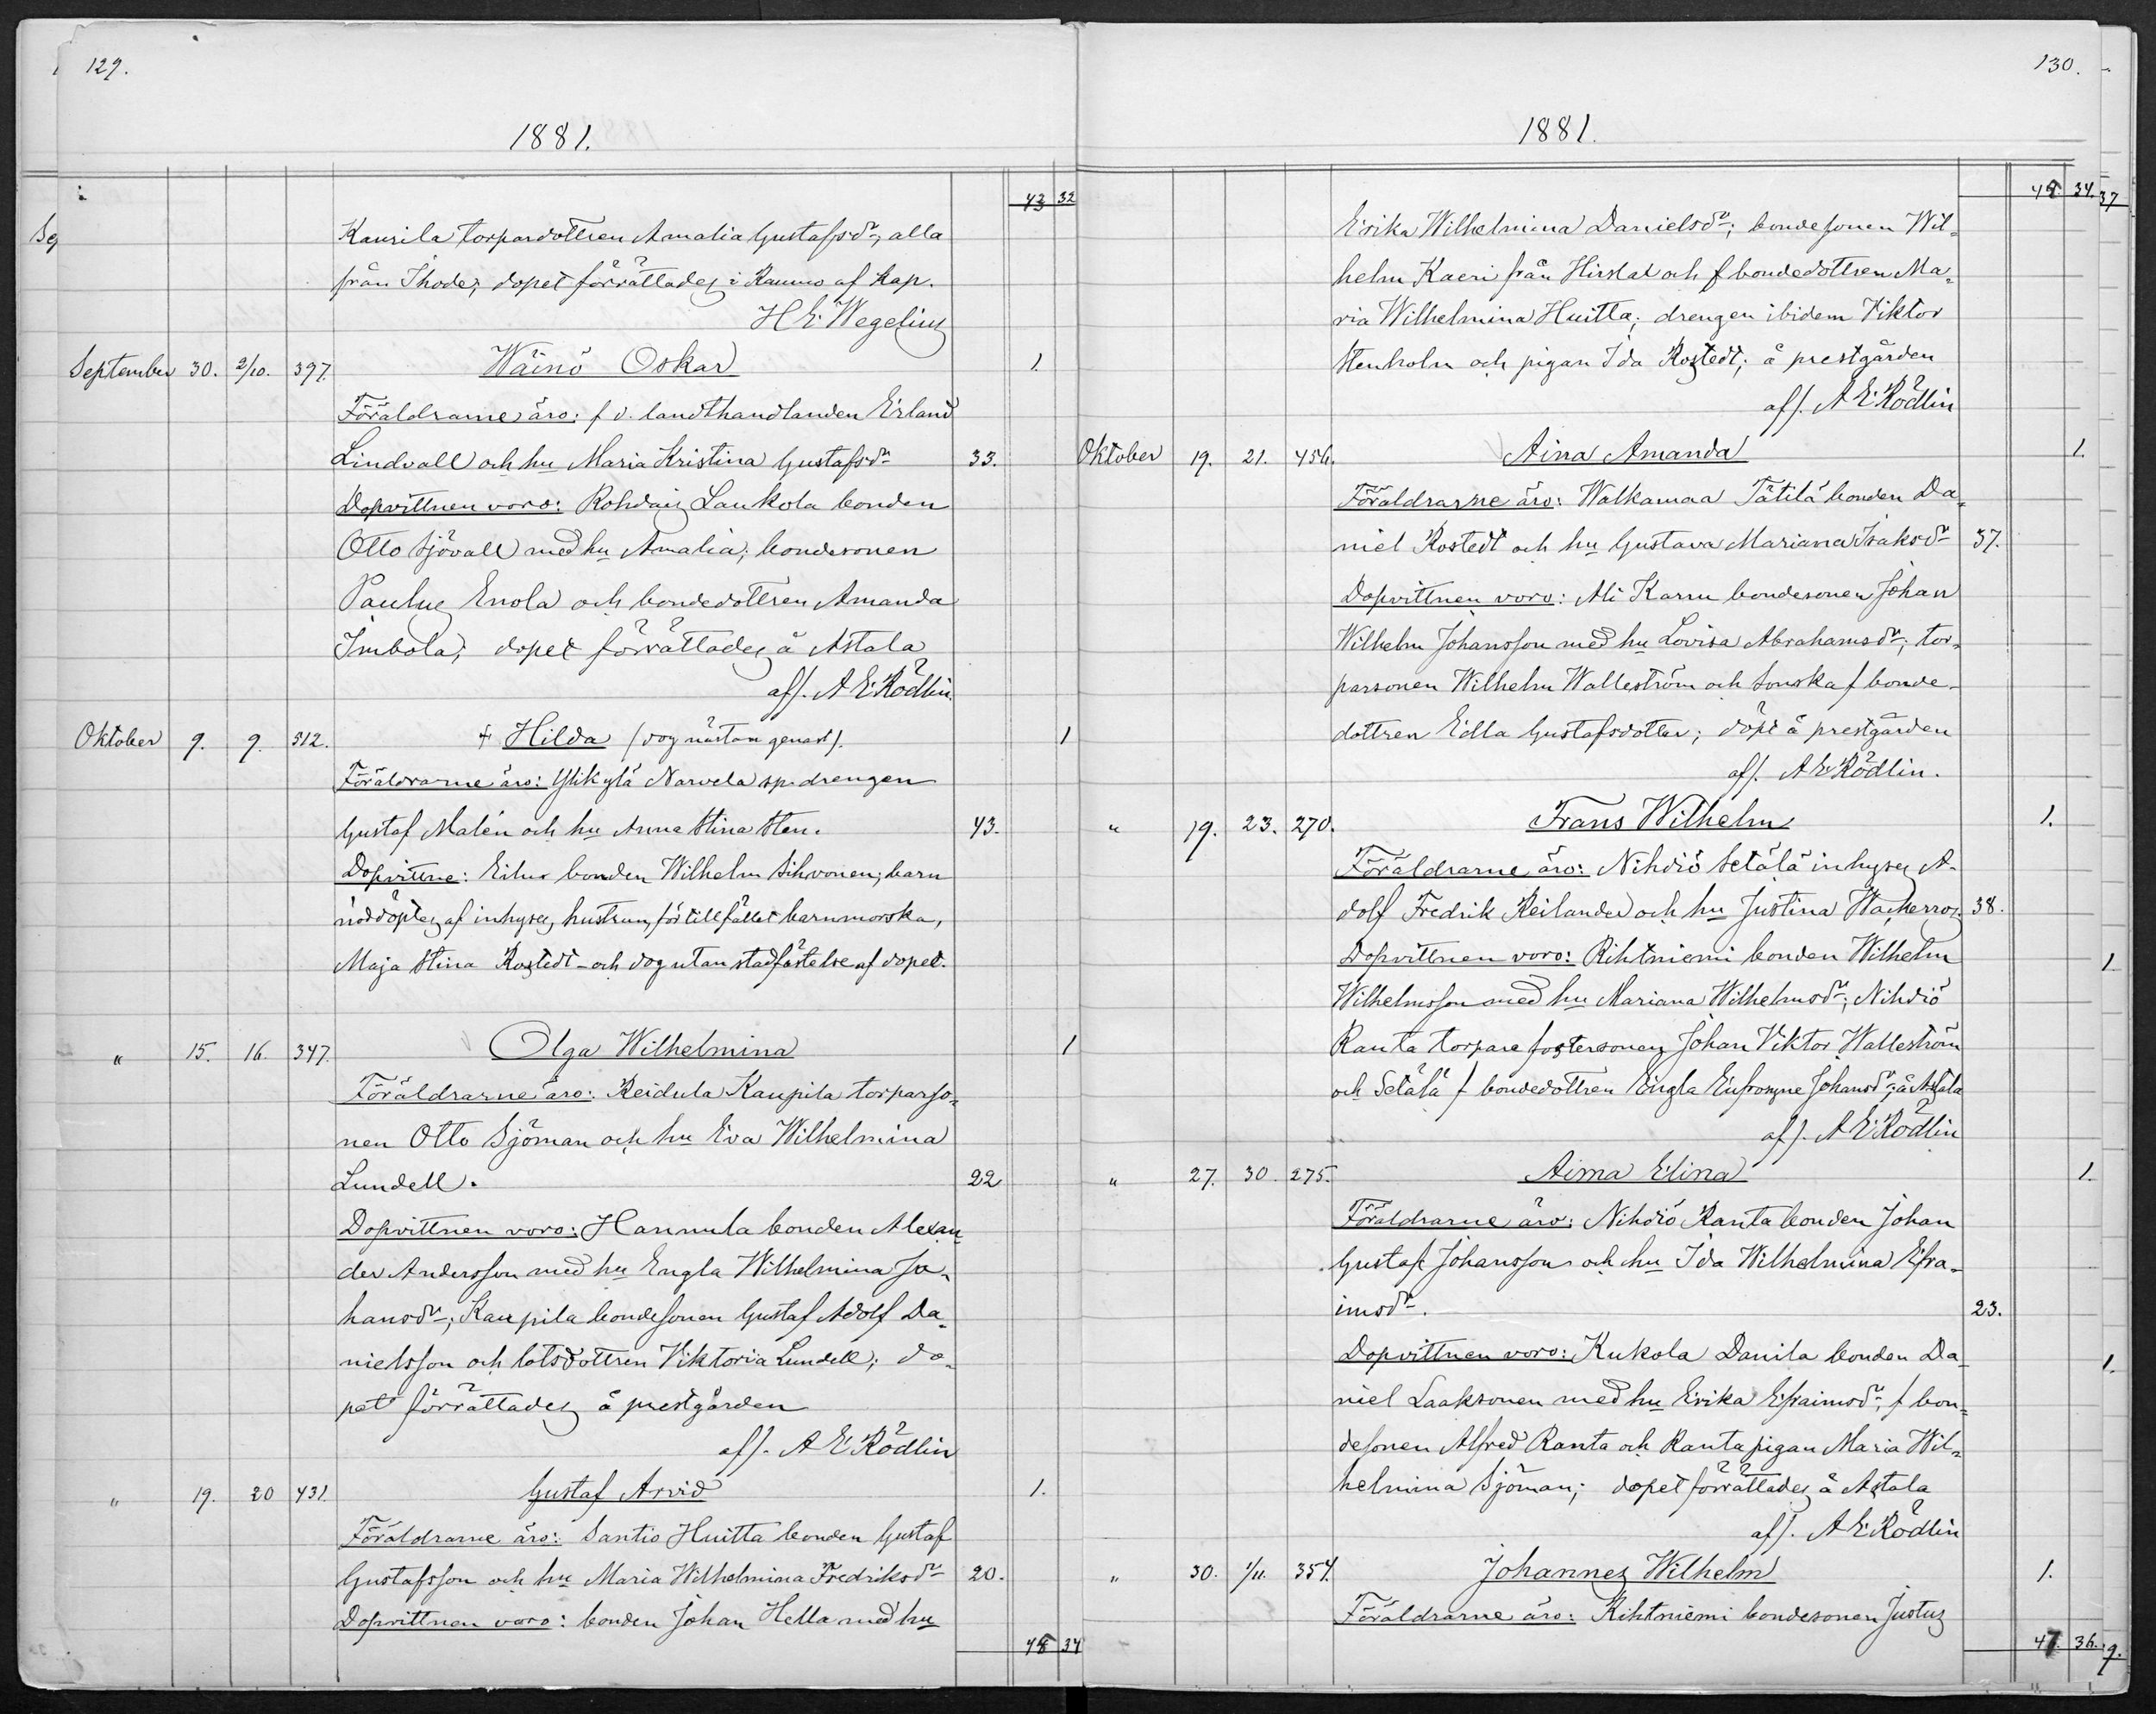 129.
1881.
43 32
Kaurila torpardottren Amalia Gustafsdr; alla
från Ihode; dopet förrättades i Raumo af kap.
H E Wegelius
September 30. 2/10. 397. Wäinö Oskar 1.
Föräldrarne äro: f d. landthandlanden Erland
Lindvall och hu Maria Kristina Gustafsdr 33.
Dopvittnen voro: Rohdais Laukola bonden
Otto Sjövall med hu Amalia; bondesonen
Paulus Enola och bondedottren Amanda
Imbola; dopet förrättades å Astala
af f. A E Rödlin.
Oktober 9. 9. 512. + Hilda (dog nästan genast). 1
Föräldrarne äro: Ylikylä Narvela sp. drengen
Gustaf Malén och hu Anna Stina Sten. 43.
Dopvittne: bonden Wilhelm Sihvonen; barn
nöddöptes af inhyses hustrun, för tillfället barnmorska,
Maja Stina Rostedt - och dog utan stadfästelse af dopet.
" 15. 16. 347. Olga Wilhelmina 1
Föräldrarne äro: Reidula Kaupila torparso-
nen Otto Sjöman och hu Eva Wilhelmina
Lundell. 22
Dopvittnen voro: Hannula bonden Alexan
der Andersson med hu Engla Wilhelmina Jo-
hansdr; Kaupila bondesonen Gustaf Adolf Da-
nielsson och lotsdottren Viktoria Lundell; do-
pet förrättades å prestgården
af f. A E Rödlin
" 19. 20 431. Gustaf Arvid 1.
Föräldrarne äro: Santio Huitta bonden Gustaf
Gustafsson och hu Maria Wilhelmina Fredriksdr 20.
Dopvittnen voro: bonden Johan Hella med hu
34
130.
1881.
34.
37
Erika Wilhelmina Danielsdr; bondesonen Wil-
helm Kaeri från Hirslax och f bondedottren Ma-
ria Wilhelmina Huitta; drengen ibidem Viktor
Stenholm och pigan Ida Rostedt; å prestgården
af f. A E Rödlin
Oktober 19. 21. 456. Aina Amanda 1.
Föräldrarne äro: Walkamaa Tätilä bonden Da-
niel Rostedt och hu Gustava Mariana Isaksdr 37.
Dopvittnen voro: Ali Karru bondesonen Johan
Wilhelm Johansson med hu Lovisa Abrahamsdr; tor-
parsonen Wilhelm Walleström och f bonde-
dottren Edla Gustafsdotter; döpt å prestgården
af f. A E Rödlin.
" 19. 23. 270. Frans Wilhelm 1.
Föräldrarne äro: Nihdiö Setälä inhyses A-
dolf Fredrik Reilander och hu Justina Wackerros 38.
Dopvittnen voro: Rihtniemi bonden Wilhelm 1
Wilhelmsson med hu Mariana Wilhelmsdr; Nihdiö
Ranta torpare fostersonen Johan Viktor Walleström
och Setälä f bondedottren Engla Eufrosyne Johansdr; å Astala
af f. A E Rödlin
" 27. 30. 275. Aima Elina 1.
Föräldrarne äro: Nihdiö Ranta bonden Johan
Gustaf Johansson och hu Ida Wilhelmina Efra-
imsdr. 23.
Dopvittnen voro: Kukola Danila bonden Da- 1.
niel Laaksonen med hu Erika Efraimsdr; f bon-
desonen Alfred Ranta och Ranta pigan Maria Wil-
helmina Sjöman; dopet förrättades å Astala
af f. A E Rödlin
" 30. 1/11. 354. Johannes Wilhelm 1.
Föräldrarne äro: Rihtniemi bondesonen Justus
47. 36. 9.